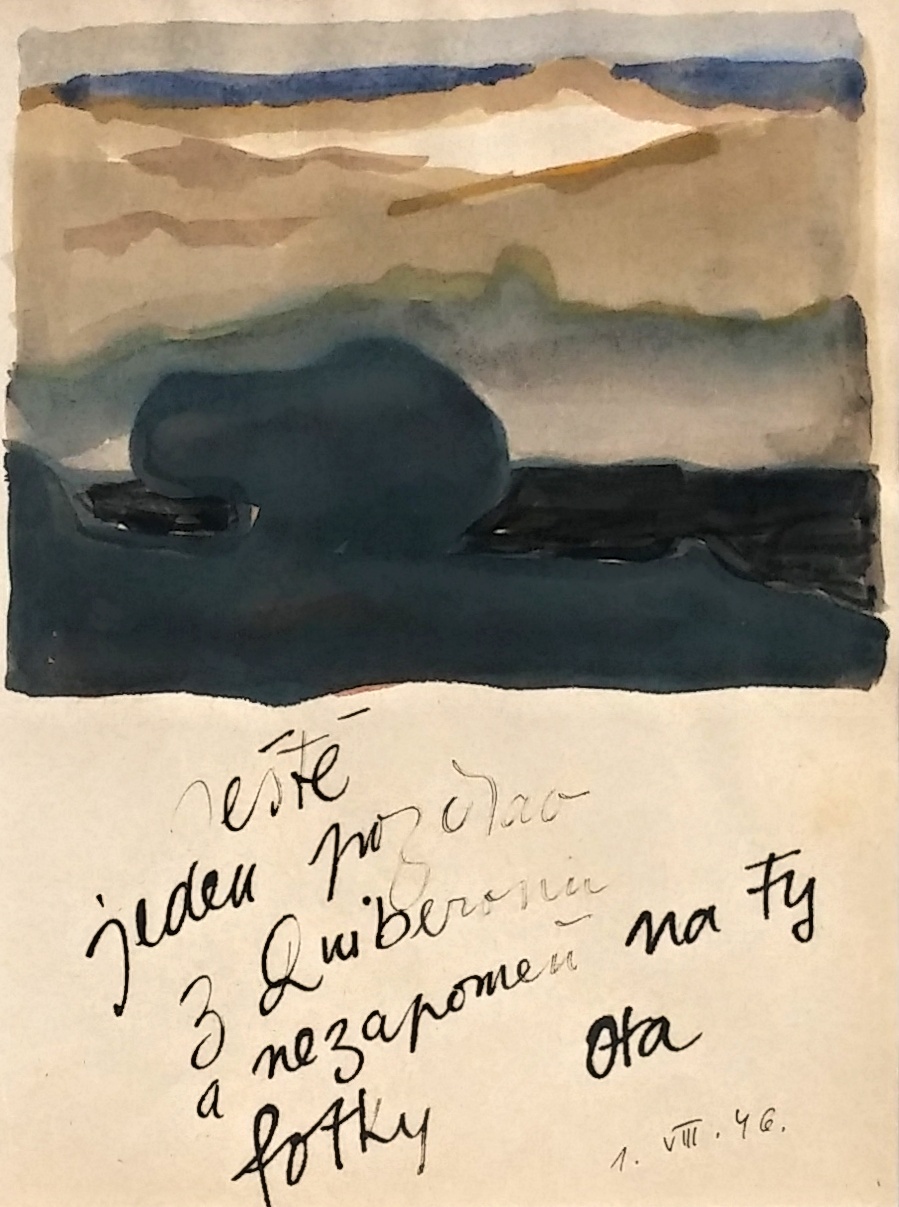 ještě
jeden pozdrav
z Quiberonu
a nezapomeň na Ty
fotky
Ota
1. VIII. 46.